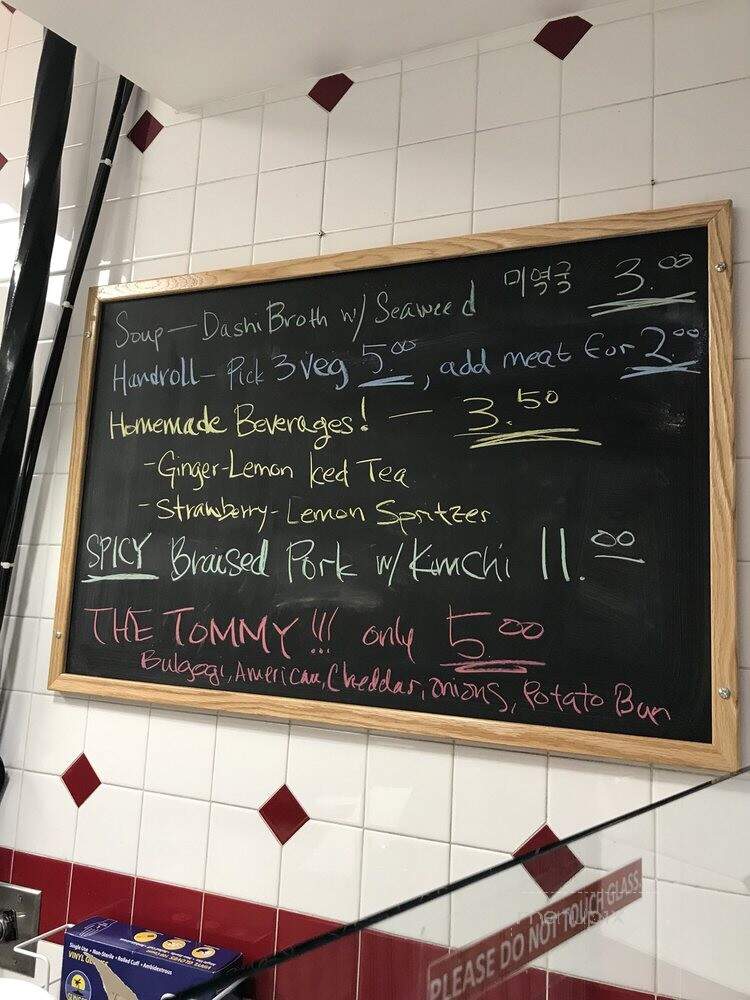 Soup — Dashi Broth w/ Seaweed 미역국 3.00
Handroll - Pick 3 veg 5.00, add meat for 2.00
Homemade Beverages! — 3.50
- Ginger-Lemon Iced Tea
- Strawberry-Lemon Spritzer
SPICY Braised Pork w/ Kimchi 11.00
THE TOMMY!!! only 5.00
Bulgogi, American, Cheddar, onions, Potato Bun
PLEASE DO NOT TOUCH GLASS
Single Use • Non-Sterile • Rolled Cuff • Ambidextrous
VINYL GLOVES